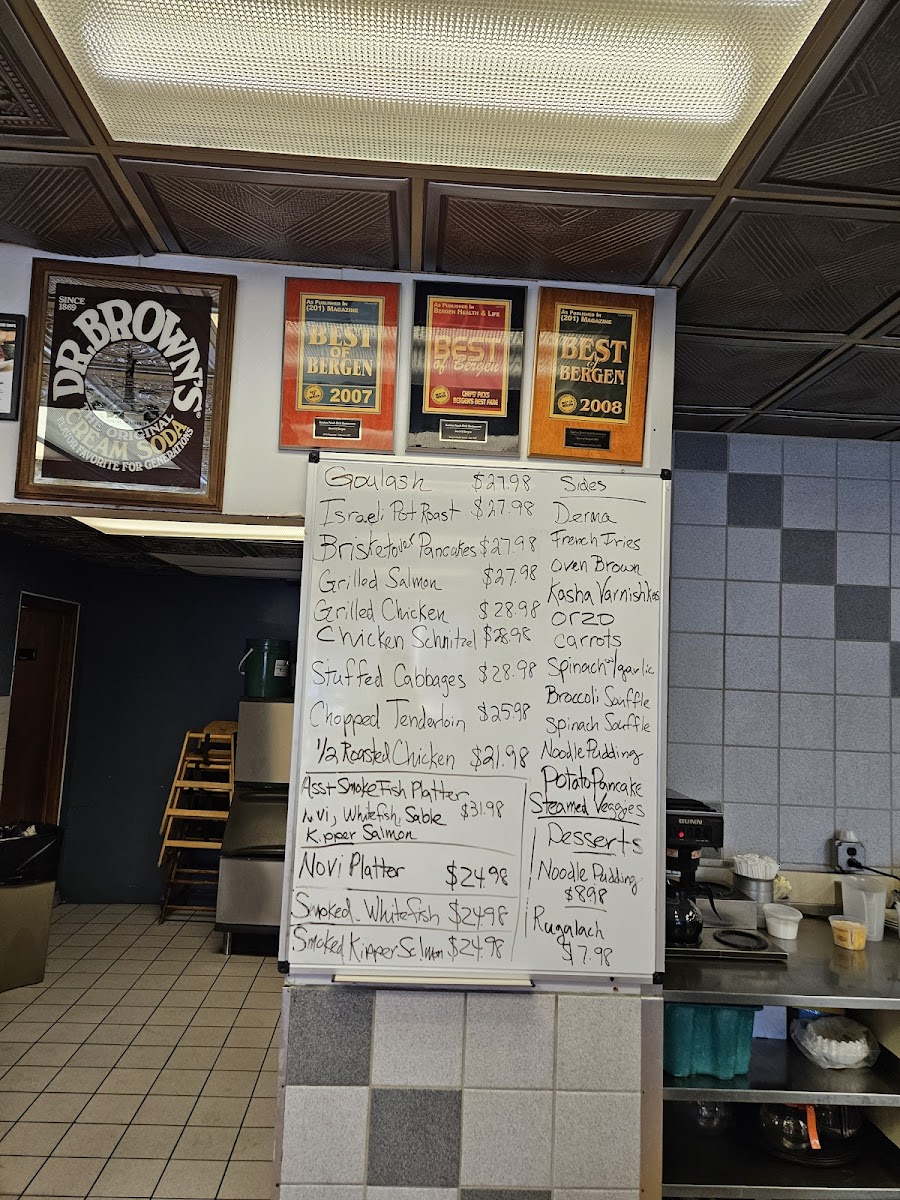 SINCE 1869
DR. BROWN'S®
THE ORIGINAL
CREAM SODA
FLAVOR FAVORITE FOR GENERATIONS
As Published In
(201) Magazine
BEST
OF
BERGEN
2007
As Published In
Bergen Health & Life
BEST
of Bergen
CHEFS' PICKS
BERGEN'S BEST FARE
As Published In
(201) Magazine
BEST
of
BERGEN
2008
Goulash $27.98
Israeli Pot Roast $27.98
Brisket over Pancakes $27.98
Grilled Salmon $27.98
Grilled Chicken $28.98
Chicken Schnitzel $28.98
Stuffed Cabbages $28.98
Chopped Tenderloin $25.98
1/2 Roasted Chicken $21.98
Asst Smoke Fish Platter
Nvi, Whitefish, Sable $31.98
Kipper Salmon
Novi Platter $24.98
Smoked Whitefish $24.98
Smoked Kipper Salmon $24.98
Sides
Derma
French Fries
Oven Brown
Kasha Varnishkes
Orzo
Carrots
Spinach w/ garlic
Broccoli Souffle
Spinach Souffle
Noodle Pudding
Potato Pancake
Steamed Veggies
Desserts
Noodle Pudding
$8.98
Rugalach
$7.98
BUNN